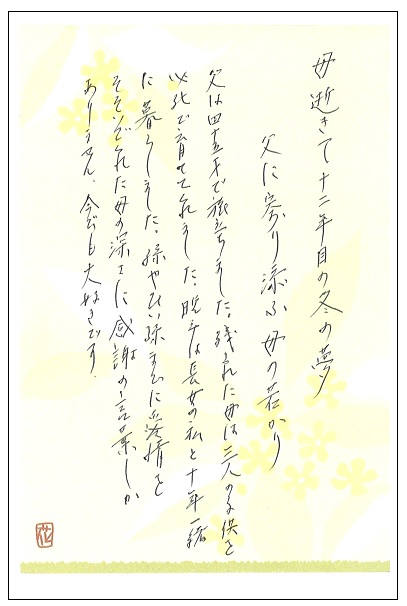 母逝きて十二年目の冬の夢
父に寄り添ふ母の若かり
父は四十五才で旅立ちました。残された母は三人の子供を
必死で育ててくれました。晩年は長女の私と十年一緒
に暮らしました。孫やひい孫までに愛情を
そそいでくれた母の深さに感謝の言葉しか
ありません。今でも大好きです。
花